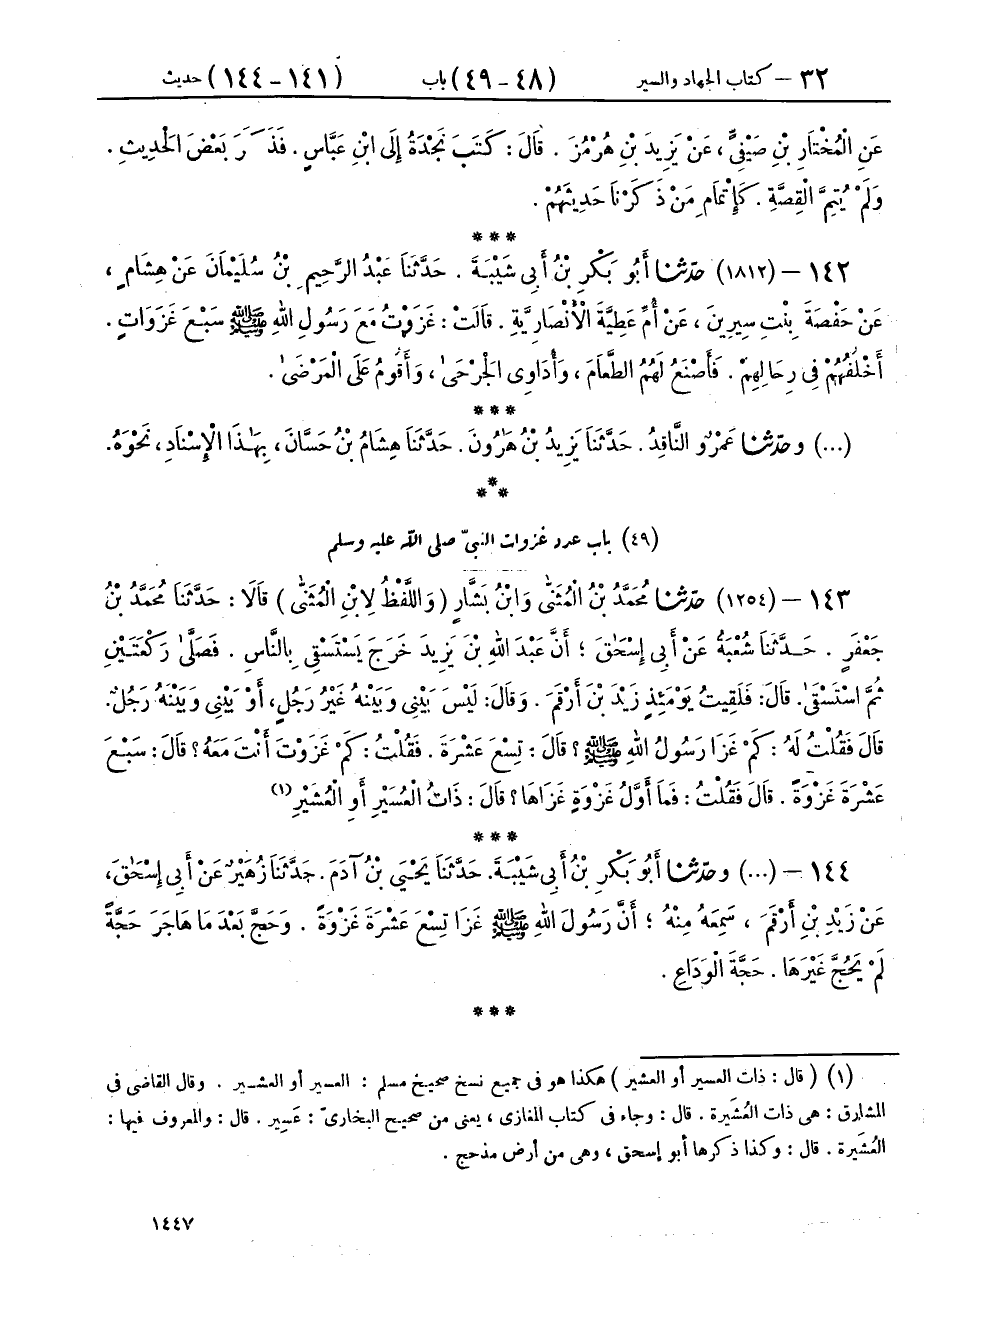 ٣٢ – كتاب الجهاد والسير (٤٨ - ٤٩) باب (١٤١ - ١٤٤) حديث
عَنِ الْمُخْتَارِ بْنِ صَيْفِيٍّ ، عَنْ يَزِيدَ بْنِ هُرْمُزَ . قَالَ : كَتَبَ نَجْدَةُ إِلَى ابْنِ عَبَّاسٍ . فَذَكَرَ بَعْضَ الْحَدِيثِ .
وَلَمْ يُتِمَّ الْقِصَّةِ . كَإِتْمَامِ مَنْ ذَكَرْنَا حَدِيثَهُمْ .
***
١٤٢ – (١٨١٢) حَدَّثَنَا أَبُو بَكْرِ بْنُ أَبِي شَيْبَةَ . حَدَّثَنَا عَبْدُ الرَّحِيمِ بْنُ سُلَيْمَانَ عَنْ هِشَامٍ ،
عَنْ حَفْصَةَ بِنْتِ سِيرِينَ ، عَنْ أُمِّ عَطِيَّةَ الْأَنْصَارِيَّةِ . قَالَتْ : غَزَوْتُ مَعَ رَسُولِ اللهِ ﷺ سَبْعَ غَزَوَاتٍ .
أَخْلُفُهُمْ فِي رِحَالِهِمْ . فَأَصْنَعُ لَهُمُ الطَّعَامَ ، وَأُدَاوِي الْجَرْحَىٰ ، وَأَقُومُ عَلَى الْمَرْضَىٰ .
***
(...) وحَدَّثَنَا عَمْرٌو النَّاقِدُ . حَدَّثَنَا يَزِيدُ بْنُ هَارُونَ . حَدَّثَنَا هِشَامُ بْنُ حَسَّانَ ، بِهَٰذَا الْإِسْنَادِ ، نَحْوَهُ.
***
(٤٩) باب عدد غزوات النبيّ صلى الله عليه وسلم
١٤٣ – (١٢٥٤) حَدَّثَنَا مُحَمَّدُ بْنُ الْمُثَنَّىٰ وَابْنُ بَشَّارٍ (وَاللَّفْظُ لِابْنِ الْمُثَنَّىٰ) قَالَا : حَدَّثَنَا مُحَمَّدُ بْنُ
جَعْفَرٍ . حَدَّثَنَا شُعْبَةُ عَنْ أَبِي إِسْحَٰقَ ؛ أَنَّ عَبْدَ اللهِ بْنَ يَزِيدَ خَرَجَ يَسْتَسْقِي بِالنَّاسِ . فَصَلَّىٰ رَكْعَتَيْنِ
ثُمَّ اسْتَسْقَىٰ. قَالَ: فَلَقِيتُ يَوْمَئِذٍ زَيْدَ بْنَ أَرْقَمَ . وَقَالَ: لَيْسَ بَيْنِي وَبَيْنَهُ غَيْرُ رَجُلٍ، أَوْ بَيْنِي وَبَيْنَهُ رَجُلٌ.
قَالَ فَقُلْتُ لَهُ : كَمْ غَزَا رَسُولُ اللهِ ﷺ ؟ قَالَ : تِسْعَ عَشْرَةَ . فَقُلْتُ : كَمْ غَزَوْتَ أَنْتَ مَعَهُ ؟ قَالَ : سَبْعَ
عَشْرَةَ غَزْوَةً . قَالَ فَقُلْتُ : فَمَا أَوَّلُ غَزْوَةٍ غَزَاهَا ؟ قَالَ : ذَاتُ الْعُسَيْرِ أَوِ الْعُشَيْرِ (١)
***
١٤٤ – (...) وحَدَّثَنَا أَبُو بَكْرِ بْنُ أَبِي شَيْبَةَ. حَدَّثَنَا يَحْيَى بْنُ آدَمَ . حَدَّثَنَا زُهَيْرٌ عَنْ أَبِي إِسْحَٰقَ،
عَنْ زَيْدِ بْنِ أَرْقَمَ ، سَمِعَهُ مِنْهُ ؛ أَنَّ رَسُولَ اللهِ ﷺ غَزَا تِسْعَ عَشْرَةَ غَزْوَةً . وَحَجَّ بَعْدَ مَا هَاجَرَ حَجَّةً
لَمْ يَحُجَّ غَيْرَهَا . حَجَّةَ الْوَدَاعِ .
***
(١) ( قال : ذات العسير أو العشير ) هكذا هو فى جميع نسخ صحيح مسلم : العسير أو العشير . وقال القاضى فى
المشارق : هى ذات العُشَيرة . قال : وجاء فى كتاب المغازى ، يعنى من صحيح البخارىّ : عَسِير . قال : والمعروف فيها :
العُشَيرة . قال : وكذا ذكرها أبو إسحق ، وهى من أرض مذحج .
١٤٤٧